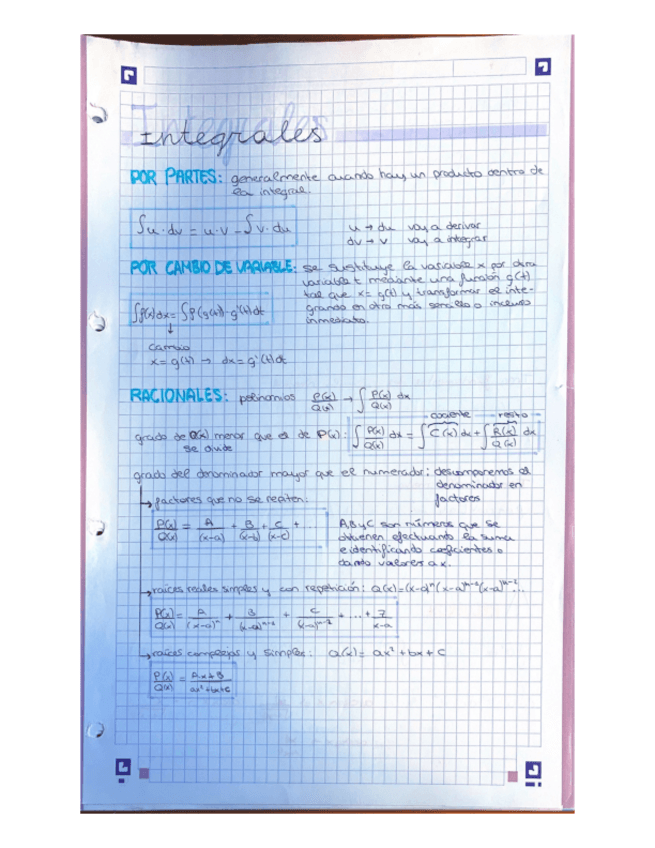 Integrales
POR PARTES: generalmente cuando hay un producto dentro de
la integral.
∫u·dv = u·v - ∫v·du
u → du voy a derivar
dv → v voy a integrar
POR CAMBIO DE VARIABLE: se sustituye la variable x por otra
variable t mediante una función g(t)
tal que x = g(t) y transformar el inte-
grando en otro más sencillo o incluso
inmediato.
∫f(x)dx = ∫f(g(t))·g'(t)dt
↓
cambio
x = g(t) → dx = g'(t)dt
RACIONALES: polinomios P(x)/Q(x) → ∫ P(x)/Q(x) dx
cociente resto
grado de Q(x) menor que el de P(x): ∫ P(x)/Q(x) dx = ∫ C(x) dx + ∫ R(x)/Q(x) dx
se divide
grado del denominador mayor que el numerador: descomponemos el
denominador en
factores
↳ factores que no se repiten:
P(x)/Q(x) = A/(x-a) + B/(x-b) + C/(x-c) + ...
A B y C son números que se
obtienen efectuando la suma
e identificando coeficientes o
dando valores a x.
↳ raíces reales simples y con repetición: Q(x) = (x-a)ⁿ(x-a)ⁿ⁻¹(x-a)ⁿ⁻² ...
P(x)/Q(x) = A/(x-a)ⁿ + B/(x-a)ⁿ⁻¹ + C/(x-a)ⁿ⁻² + ... + Z/x-a
↳ raíces complejas y simples: Q(x) = ax² + bx + c
P(x)/Q(x) = Ax+B/ax²+bx+c